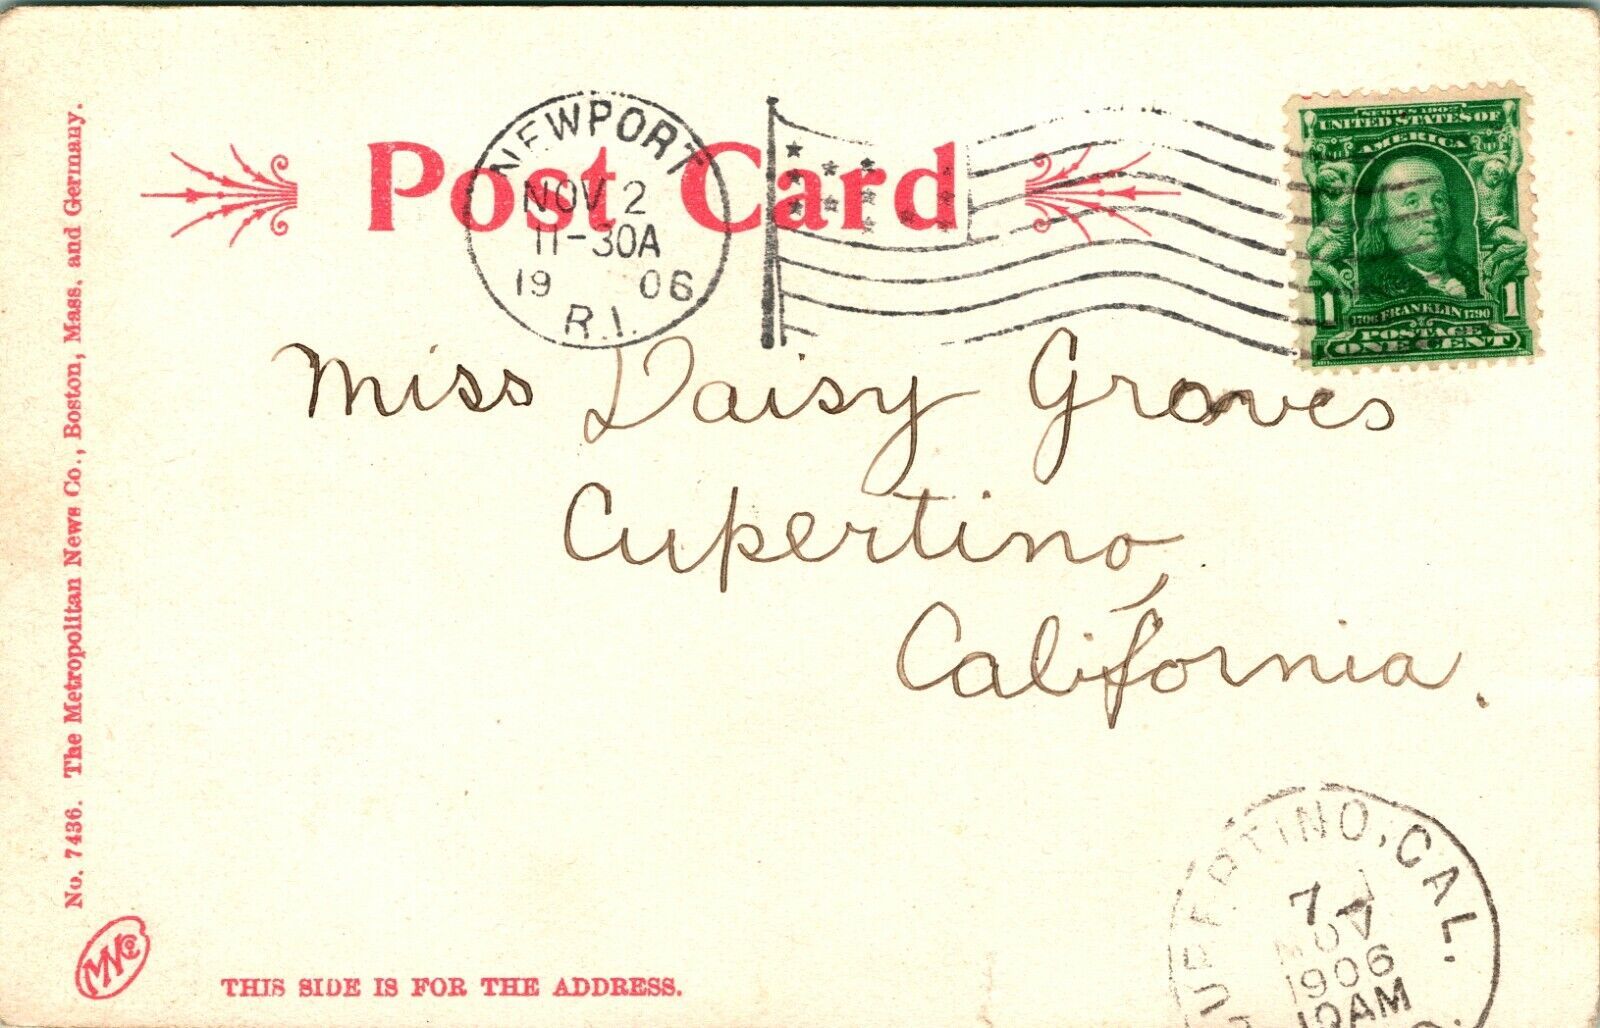 Post Card
NEWPORT
NOV 2
11-30A
19 06
R.I.
SERIES 1902
UNITED STATES OF
AMERICA
1 1
1706 FRANKLIN 1790
POSTAGE
ONE CENT
Miss Daisy Graves
Cupertino,
California.
No. 7436. The Metropolitan News Co., Boston, Mass. and Germany.
MNCo
THIS SIDE IS FOR THE ADDRESS.
CUPERTINO, CAL.
7
NOV
1906
10AM